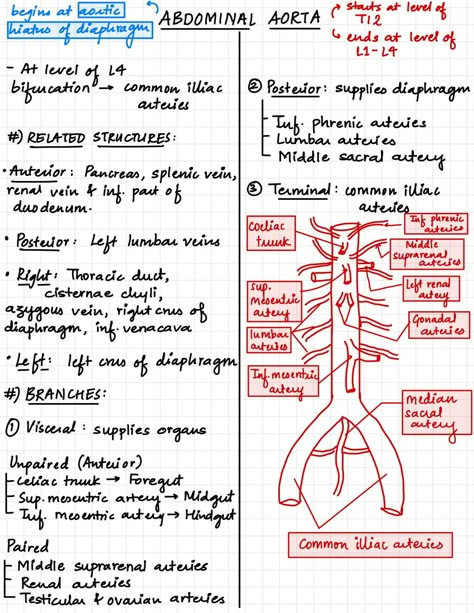 begins at aortic
hiatus of diaphragm
ABDOMINAL AORTA
starts at level of
T12
ends at level of
L1-L4
- At level of L4
bifurcation → common illiac
arteries
#) RELATED STRUCTURES:
• Anterior: Pancreas, splenic vein,
renal vein & inf. part of
duodenum.
• Posterior: Left lumbar veins
• Right: Thoracic duct,
cisternae chyli,
azygous vein, right crus of
diaphragm, inf. venacava
• Left: left crus of diaphragm
#) BRANCHES:
① Visceral: supplies organs
Unpaired (Anterior)
Celiac trunk → Foregut
Sup. mesentric artery → Midgut
Inf. mesentric artery → Hindgut
Paired
Middle suprarenal arteries
Renal arteries
Testicular & ovarian arteries
② Posterior: supplies diaphragm
Inf. phrenic arteries
Lumbar arteries
Middle sacral artery
③ Terminal: common illiac
arteries
Coeliac
trunk
Inf phrenic
arteries
Middle
suprarenal
arteries
Left renal
artery
Sup.
mesentric
artery
Gonadal
arteries
lumbar
arteries
Inf. mesentric
artery
median
sacral
artery
Common illiac arteries